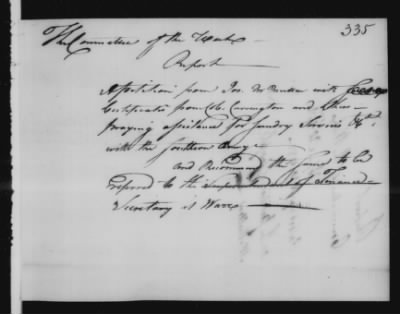 335
The Committee of the Week
Report
A petition from Jos. with
Certificates from Col. Carrington and
praying assistance for sundry Services &c
with the Southern Army
And Recommend the same to be
referred to the Superintendant of Finance
Secretary at Warr